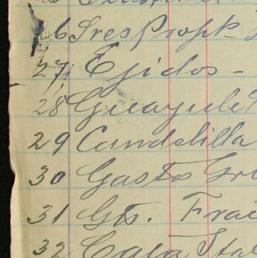 26 Sres Propk
27, Ejidos -
28 Guayule
29 Candelilla
30 Gastos Gr
31 Gts. Frac
32 Caja